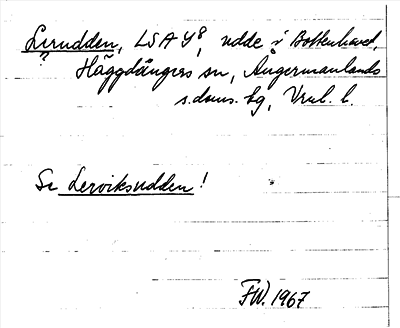 Lerudden, LSA Y8, udde i Bottenhavet,
?
Häggdångers sn, Ångermanlands
s. doms. tg, Vnl. l.
Se Lerviksudden!
FW. 1967